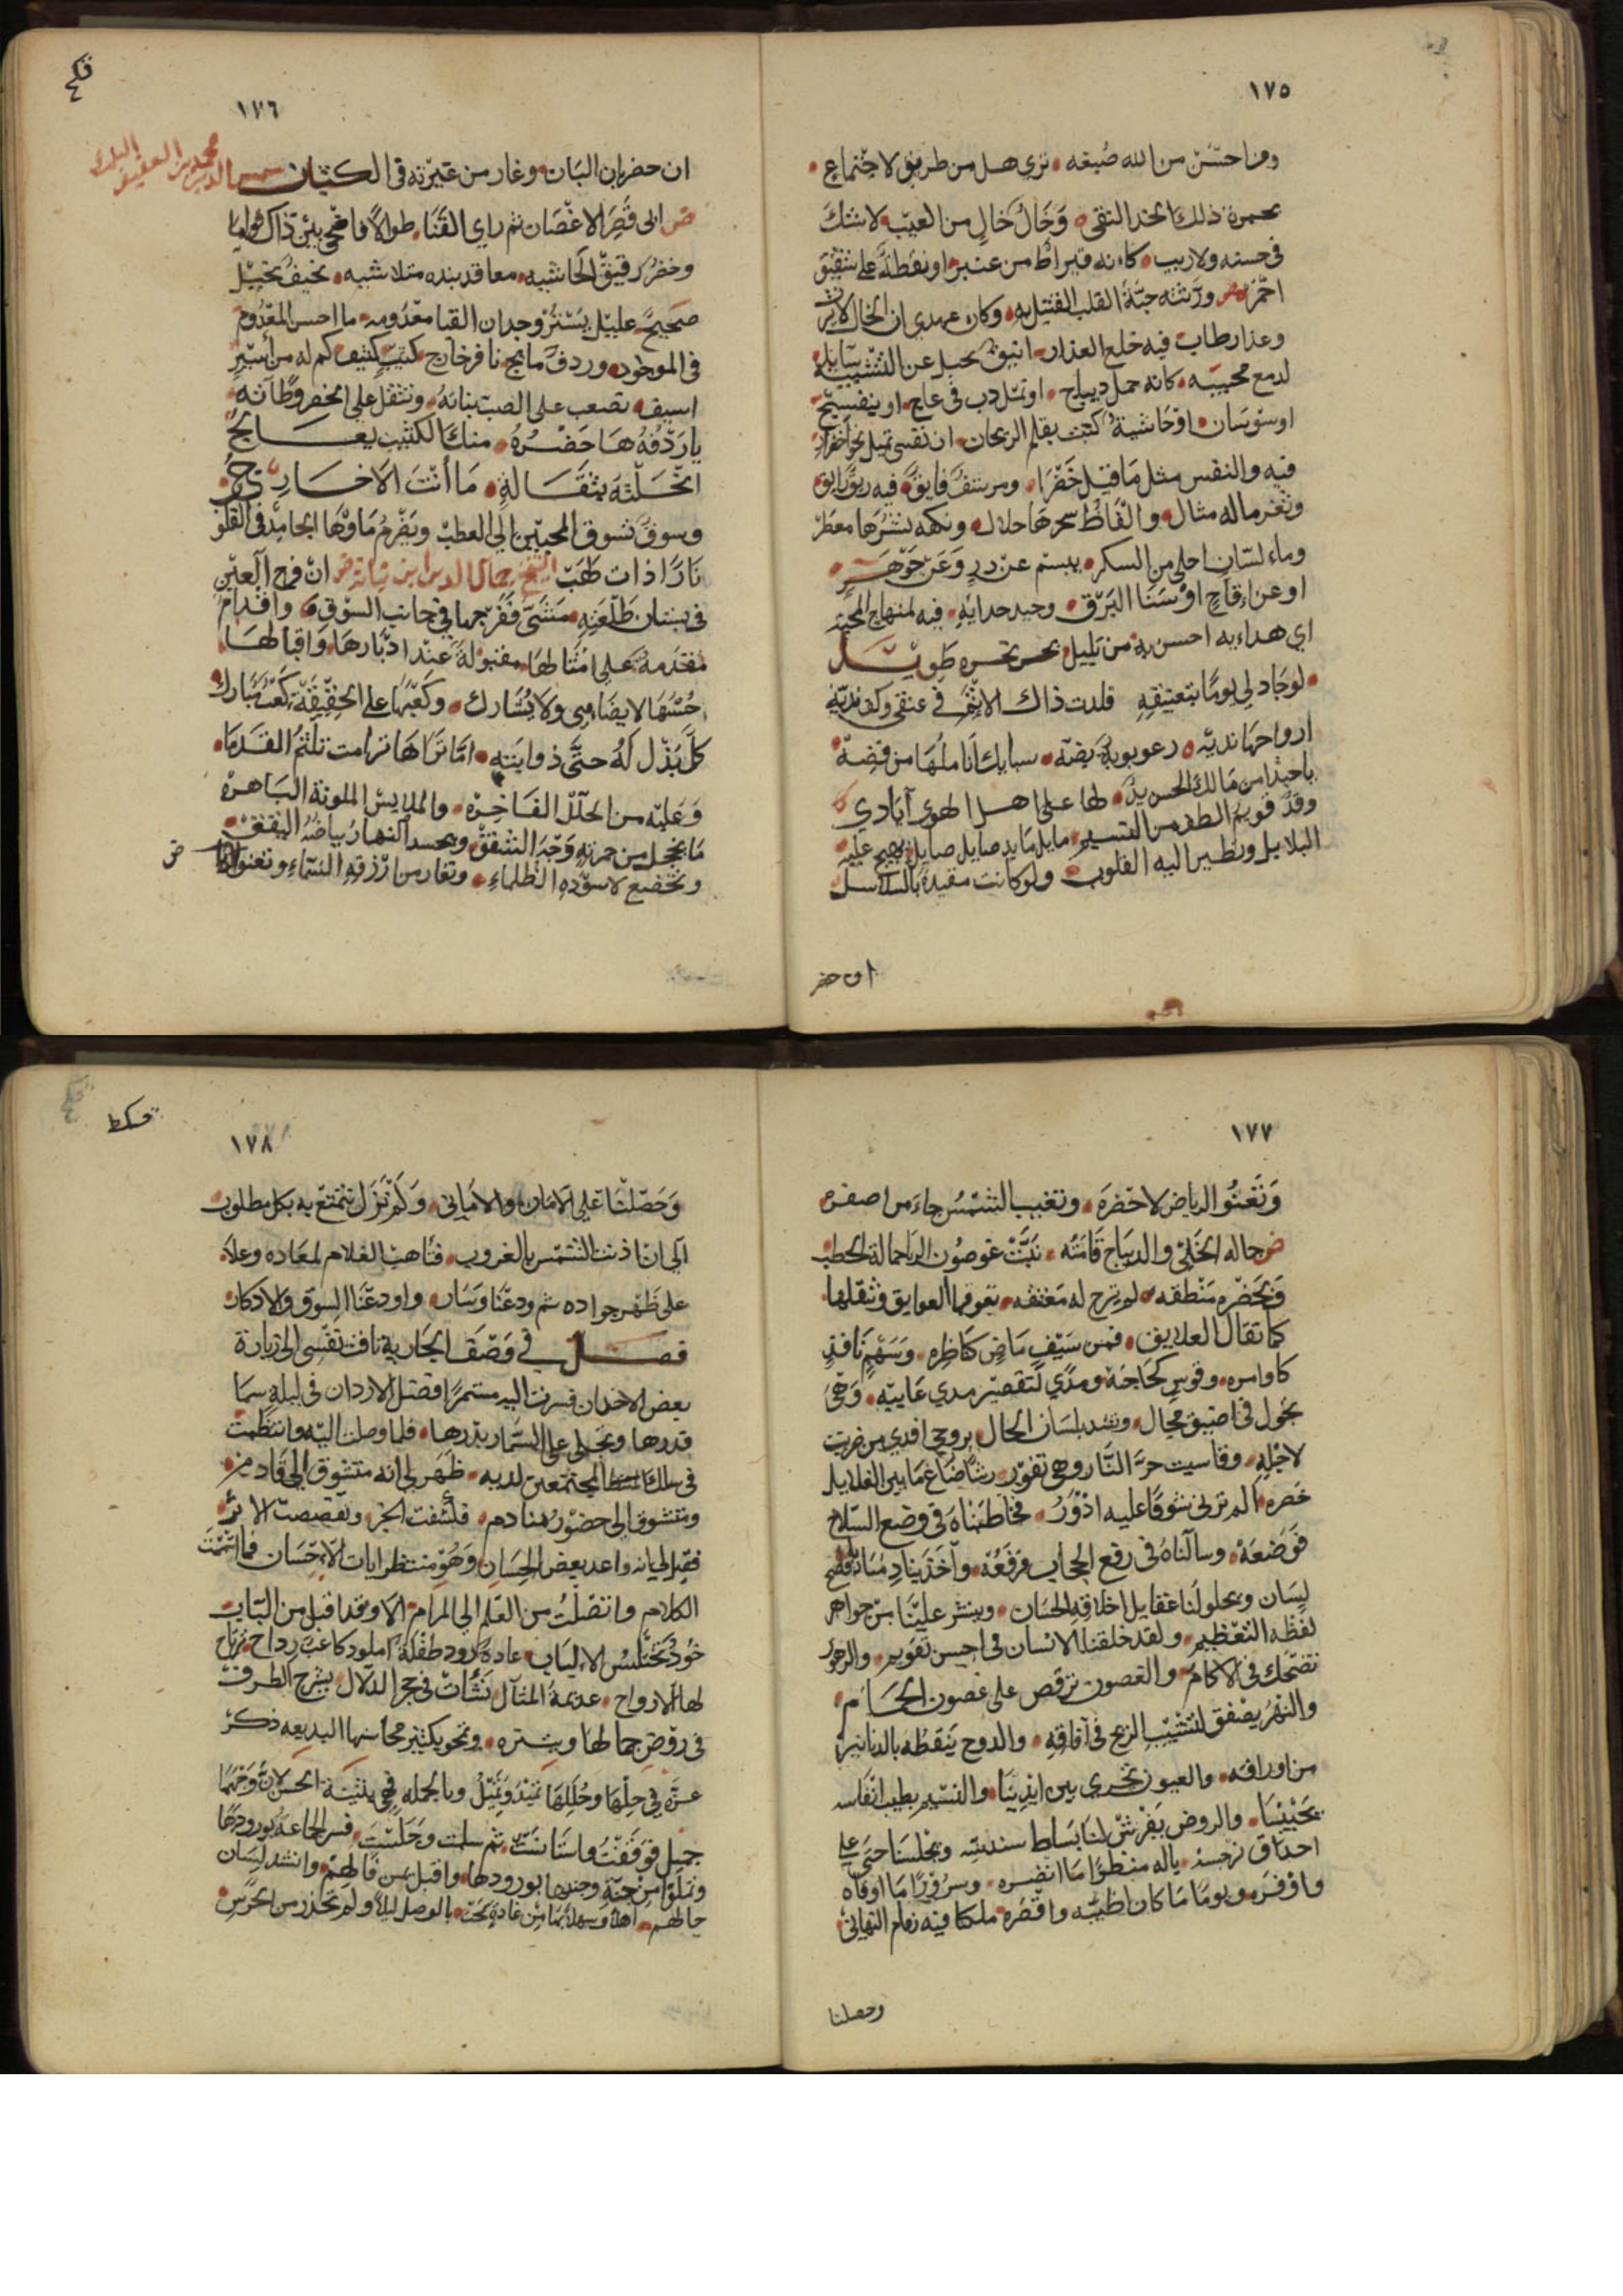 ١٧٥
ومن احسن من الله صبغه • ترى هل من طريق لاجتماع •
بحمرة ذلك الخد النقى • وخال خال من العيب لا شك
فى حسنه ولا ريب • كانه قيراط من عنبر او نقطة على شقيق
احمر ورثته حبة القلب القتيل به وكان عهدى ان الخال لا يرث
وعذار طاب فيه خلع العذار • انيق يحيل عن التشبيه سايل
لدمع محبيبه • كانه حمل ديباج • او نمل دب فى عاج • او بنفسج
او سوسان • او حاشية كتبت بقلم الريحان • ان نفسى تميل نحو اخضرار
فيه والنفس مثل ما قيل خضرا • ومرشف فايق فيه ريق رايق
وثغر ماله مثال • والفاظ سحرها حلال • ونكهه نشرها معطر
وماء لسان احلى من السكر • يبسم عن در وعن جوهر •
او عن اقاح او سنا البرق • وجيد حدايه • فيه لمنهاج المحبه
اي هدايه احسن به من تليل • بحر نحره طويل
• لو جاد لي يوما بتعنيقه قلدت ذاك الاثم فى عنقى وكف نديه
ارواحها نديه • رعوبوبة بضه • سبايك اناملها من فضة •
يا حبذا من مالك الحسن يد • لها على اهل الهوى أيادي
وقد قويم الطف من النسيم • مايل مايد صايل صايل • يهيج عليه
البلابل وتطير اليه القلوب • ولو كانت مقيدة بالسلاسل
ان خضر
١٧٦
ان خضر بان البان • وغار من غيرته فى الكثبان شمس الدين محمد بن العفيف التلمسانى
ض الى قصر الاغصان ثم راى القنا • طوالا فاضحى بين ذاك قواما
وخضر رقيق الحاشيه • معاقد بنده متلاشيه • نحيف نحيل
صحيح عليل يستر وجدان القبا معدومه • ما احسن المعدوم
فى الموجود • وردف مايج • نافر خارج • كثيب كثيف كم له من اسير
اسيف • تصعب على الصب بنانه • وتثقل على الخصر وطاته •
يا ردفه ها خضره • منك الكثيب يعالج
انحلته بثقالة • ما أنت الا خارج •
وسوق تسوق المحبين الى العطب ويضرم ماوها الجامد فى القلوب
نارا ذات لهب الشيخ جمال الدين ابن نباته ض ان فرج العين
فى بستان طلعته • مشى ففرجها فى جانب السوق • واقدام
مقدمة على امثالها • مقبولة عند ادبارها • واقبالها •
حسنها لا يضاهى ولا يشارك • وكعبها على الحقيقة كعب مبارك
كل يذل له حتى ذوايبته • اما تراها ترامت تلثم القدما •
وعليه من الحلل الفاخره • والملابس الملونة الباهره
ما يخجل من حمرته وجه الشفق • ويحسد النهار بياضه اليقق •
وتخضع لاسوده الظلماء • وتغار من ازرقه السماء • وتعنو الرياض
١٧٧
وتعنو الرياض لاخضره • وتغيب الشمس حياء من اصفره
ض حاله الخلي والديباج قامته • تبت غوصون الربا حمالة الحطب
وبخضره منطقه • لم يرج له معتقه • تعوقها العوايق وتثقلها
كما تقال العلايق • فمن سيف ماض كناظره • وسهم نافذ
كاوامره • وقوس كحاجبه • ومدى لتقصير مدى عاييه • وهى
تجول فى اضيق مجال • وتنشد بلسان الحال • بروحى افدى من ضربت
لاجله • وقاسيت حر النار وهى تفور • رشا ضاع ما بين الغلايل
خصره • الم ترنى شوقا عليه ادور • فخاطبناه فى وضع السلاح
فوضعه • وسالناه فى رفع الحجاب فرفعه • واخذ ينادمنا بافصح
لسان ويجلو لنا عقايل اخلاقه الحسان • وينثر علينا من جواهر
لفظه التعظيم • ولقد خلقنا الانسان فى احسن تقويم • والزهور
تضحك فى الاكمام • والغصون ترقص على غصون الحمام •
والنهر يصفق لتشبيب الريح فى آفاقه • والدوح ينقطه بالدنانير
من اوراقه • والعيون تجرى بين ايدينا • والنسيم بطيب انفاسه
يحيينا • والروض يفرش لنا بساط سندسه • ويجلسنا حتى على
احداق نرجسه • ياله منظرا ما انضره • وسرورا ما اوفاه
واوفره ويوما ما كان اطيبه واقصره • ملكنا فيه زمام التهانى
وحصلنا
١٧٨
وحصلنا على الامان والامانى • ولم نزل نتمتع به بكل مطلوب
الى ان اذنت الشمس بالغروب • فتاهب الغلام لمعاده وعلا
على ظهر جواده ثم ودعنا وسار • واودعنا الشوق والادكار
فصل فى وصف الجارية تاقت نفسى الى زيارة
بعض الاخدان فسرت اليه مستمرا افضل الاردان فى ليلة سما
قدرها وتجلى على السمار بدرها • فلما وصلت اليه وانتظمت
فى سلك المجتمعين لديه • ظهر لى انه متشوق الى قادم •
ومتشوف الى حضور منادم • فكشفت الخبر • وتقصصت الاثر
فقيل لى انه واعد بعض الحسان وهو منتظر ايات الاحسان فما اتممت
الكلام • واتصلت من العلم الى المرام • الا وقد اقبل من الباب
خود تختلس الالباب • غادة رود طفلة املود كاعب رداح ترتاح
لها الارواح • عديمة المثال نشأت فى حجر الدلال يسرح الطرف
فى روض جمالها ويشره • ونحو بكثير محاسنها البديعه ذكر
عزه فى حليها وحللها تميد وتميل وبالجمله فهى بثينة الحسن لان وجهها
جميل فوقفت واستانست ثم سلمت وجلست فسر الجماعة بورودها
وتملوا من جنة وجنتها بورودها • واقبل من قالهم • وانشد لسان
حالهم • اهلا وسهلا بها من غادة سمحت • بالوصل ليلا ولم تحذر من الحرس